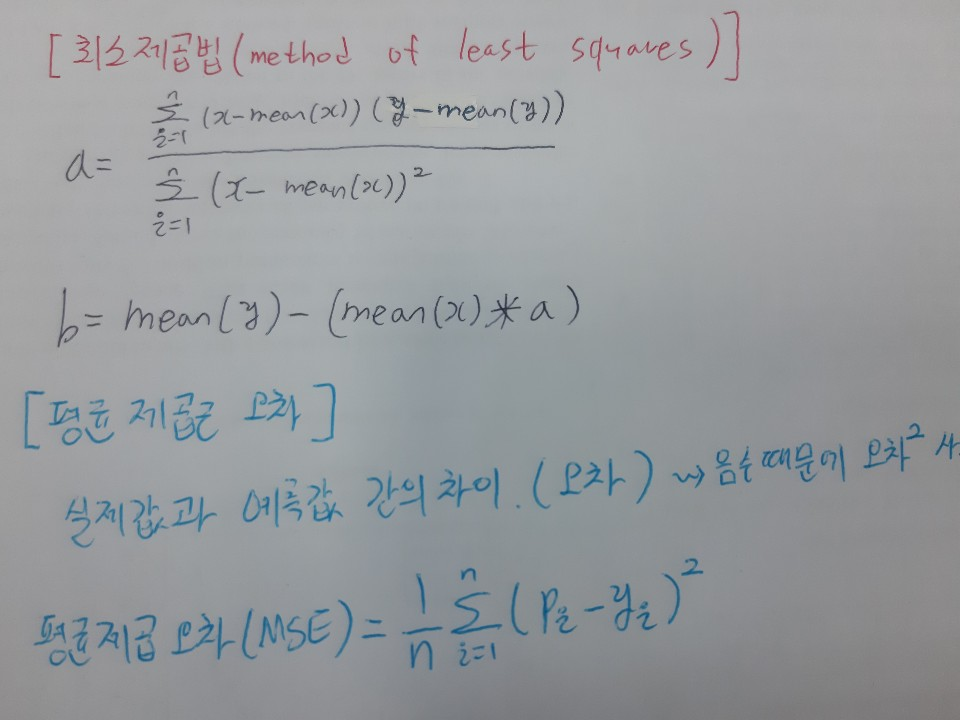 [최소제곱법(method of least squares)]
a= \frac{\sum_{i=1}^{n} (x-mean(x))(y-mean(y))}{\sum_{i=1}^{n} (x-mean(x))^2}
b= mean(y)-(mean(x)*a)
[평균 제곱근 오차]
실제값과 예측값 간의 차이.(오차) ⇝ 음수때문에 오차² 사
평균제곱 오차(MSE)= \frac{1}{n} \sum_{i=1}^{n} (p_i-y_i)^2